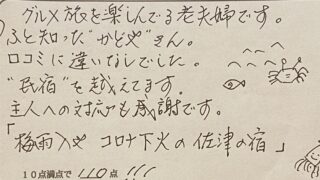 グルメ旅を楽しんでる老夫婦です。
ふと知った“かどや”さん。
口コミに違いなしでした。
“民宿”を越えてます。
主人への対応も感謝です。
「梅雨入や コロナ下火の 佐津の宿」
10点満点で 110点!!!